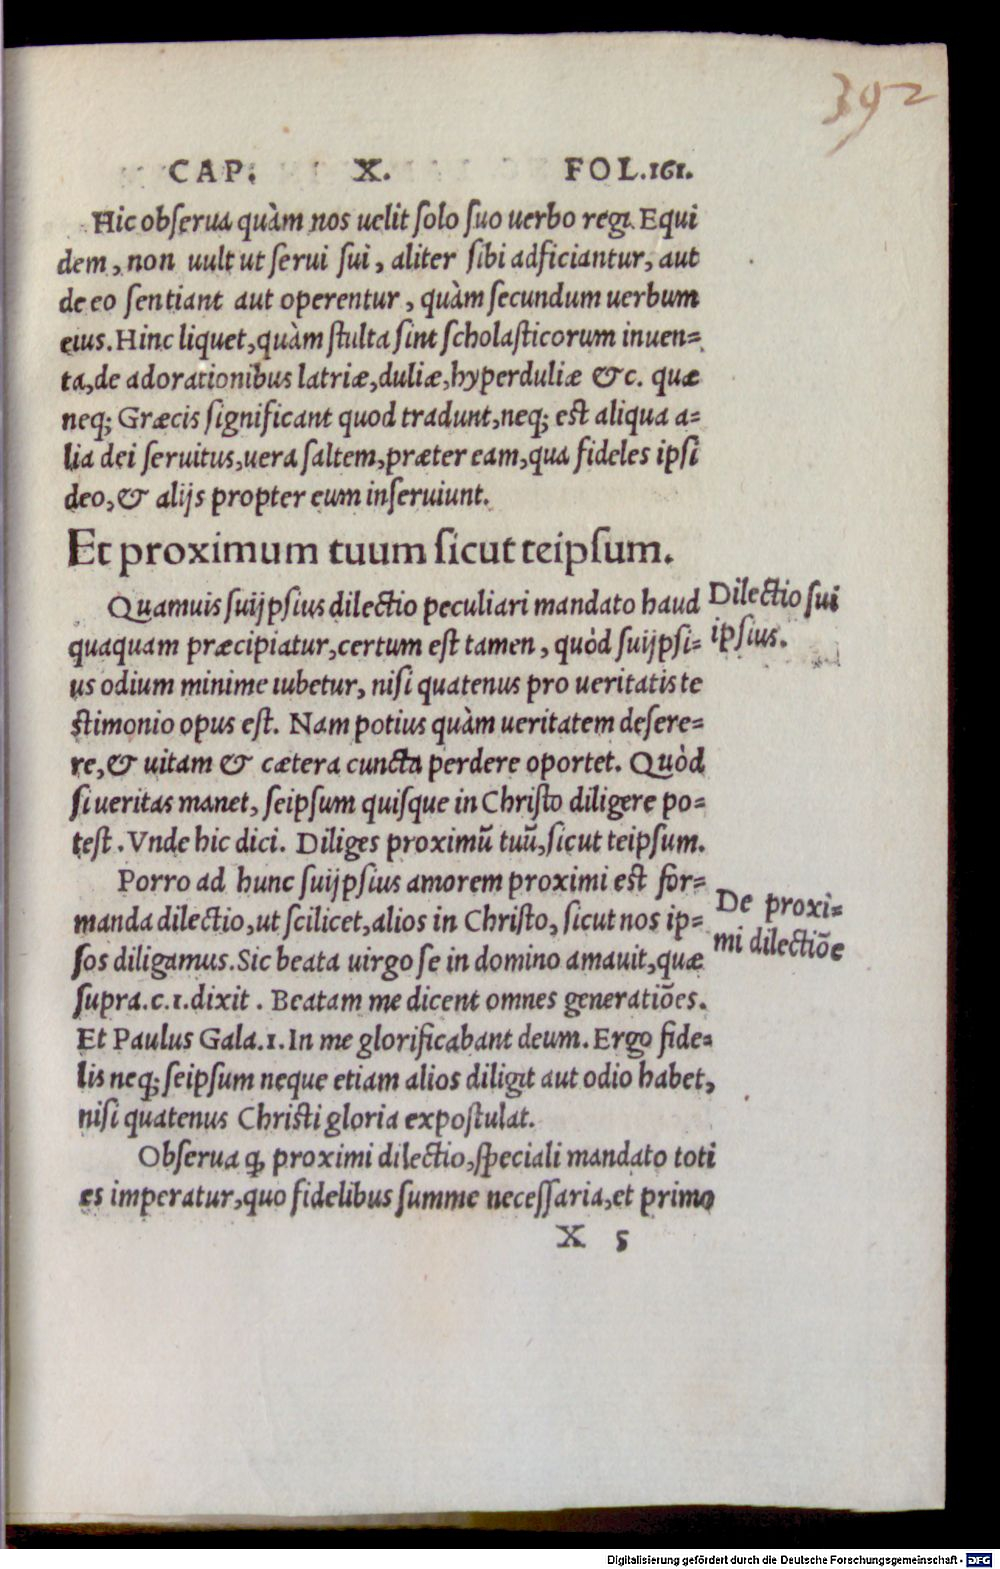 392
CAP. X. FOL.161.
Hic obſerua quàm nos uelit ſolo ſuo uerbo regi. Equi
dem, non uult ut ſerui ſui, aliter ſibi adficiantur, aut
de eo ſentiant aut operentur, quàm ſecundum uerbum
eius. Hinc liquet, quàm ſtulta ſint ſcholaſticorum inuen=
ta, de adorationibus latriæ, duliæ, hyperduliæ &c. quæ
neq; Græcis ſignificant quod tradunt, neq; est aliqua a=
lia dei ſeruitus, uera ſaltem, præter eam, qua fideles ipſi
deo, & alijs propter eum inſeruiunt.
Et proximum tuum ſicut teipſum.
Quamuis ſuijpſius dilectio peculiari mandato haud
Dilectio ſui
quaquam præcipiatur, certum eſt tamen, quòd ſuijpſi=
ipſius.
us odium minime iubetur, niſi quatenus pro ueritatis te
ſtimonio opus eſt. Nam potius quàm ueritatem deſere=
re, & uitam & cætera cuncta perdere oportet. Quòd
ſi ueritas manet, ſeipſum quiſque in Chriſto diligere po=
teſt. Vnde hic dici. Diliges proximũ tuũ, ſicut teipſum.
Porro ad hunc ſuijpſius amorem proximi eſt for=
De proxi=
manda dilectio, ut ſcilicet, alios in Chriſto, ſicut nos ip=
mi dilectiõe
ſos diligamus. Sic beata uirgo ſe in domino amauit, quæ
ſupra.c.1.dixit. Beatam me dicent omnes generatiões.
Et Paulus Gala.1. In me glorificabant deum. Ergo fide=
lis neq; ſeipſum neque etiam alios diligit aut odio habet,
niſi quatenus Chriſti gloria expoſtulat.
Obſerua ꝙ proximi dilectio, ſpeciali mandato toti
es imperatur, quo fidelibus ſumme neceſſaria, et primo
X 5
Digitalisierung gefördert durch die Deutsche Forschungsgemeinschaft - DFG